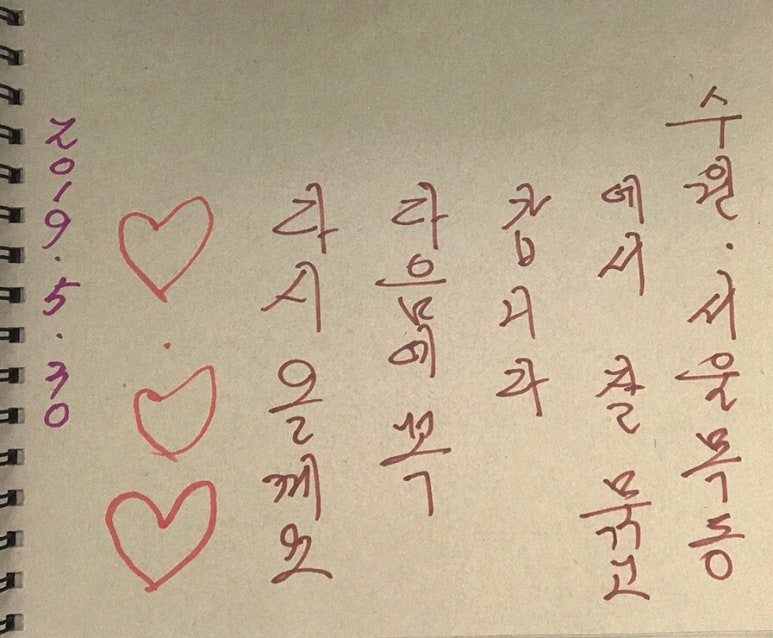 수원.서울
에서 잘 묵고
갑니다
다음에 꼭
다시 올게요
2019.5.30